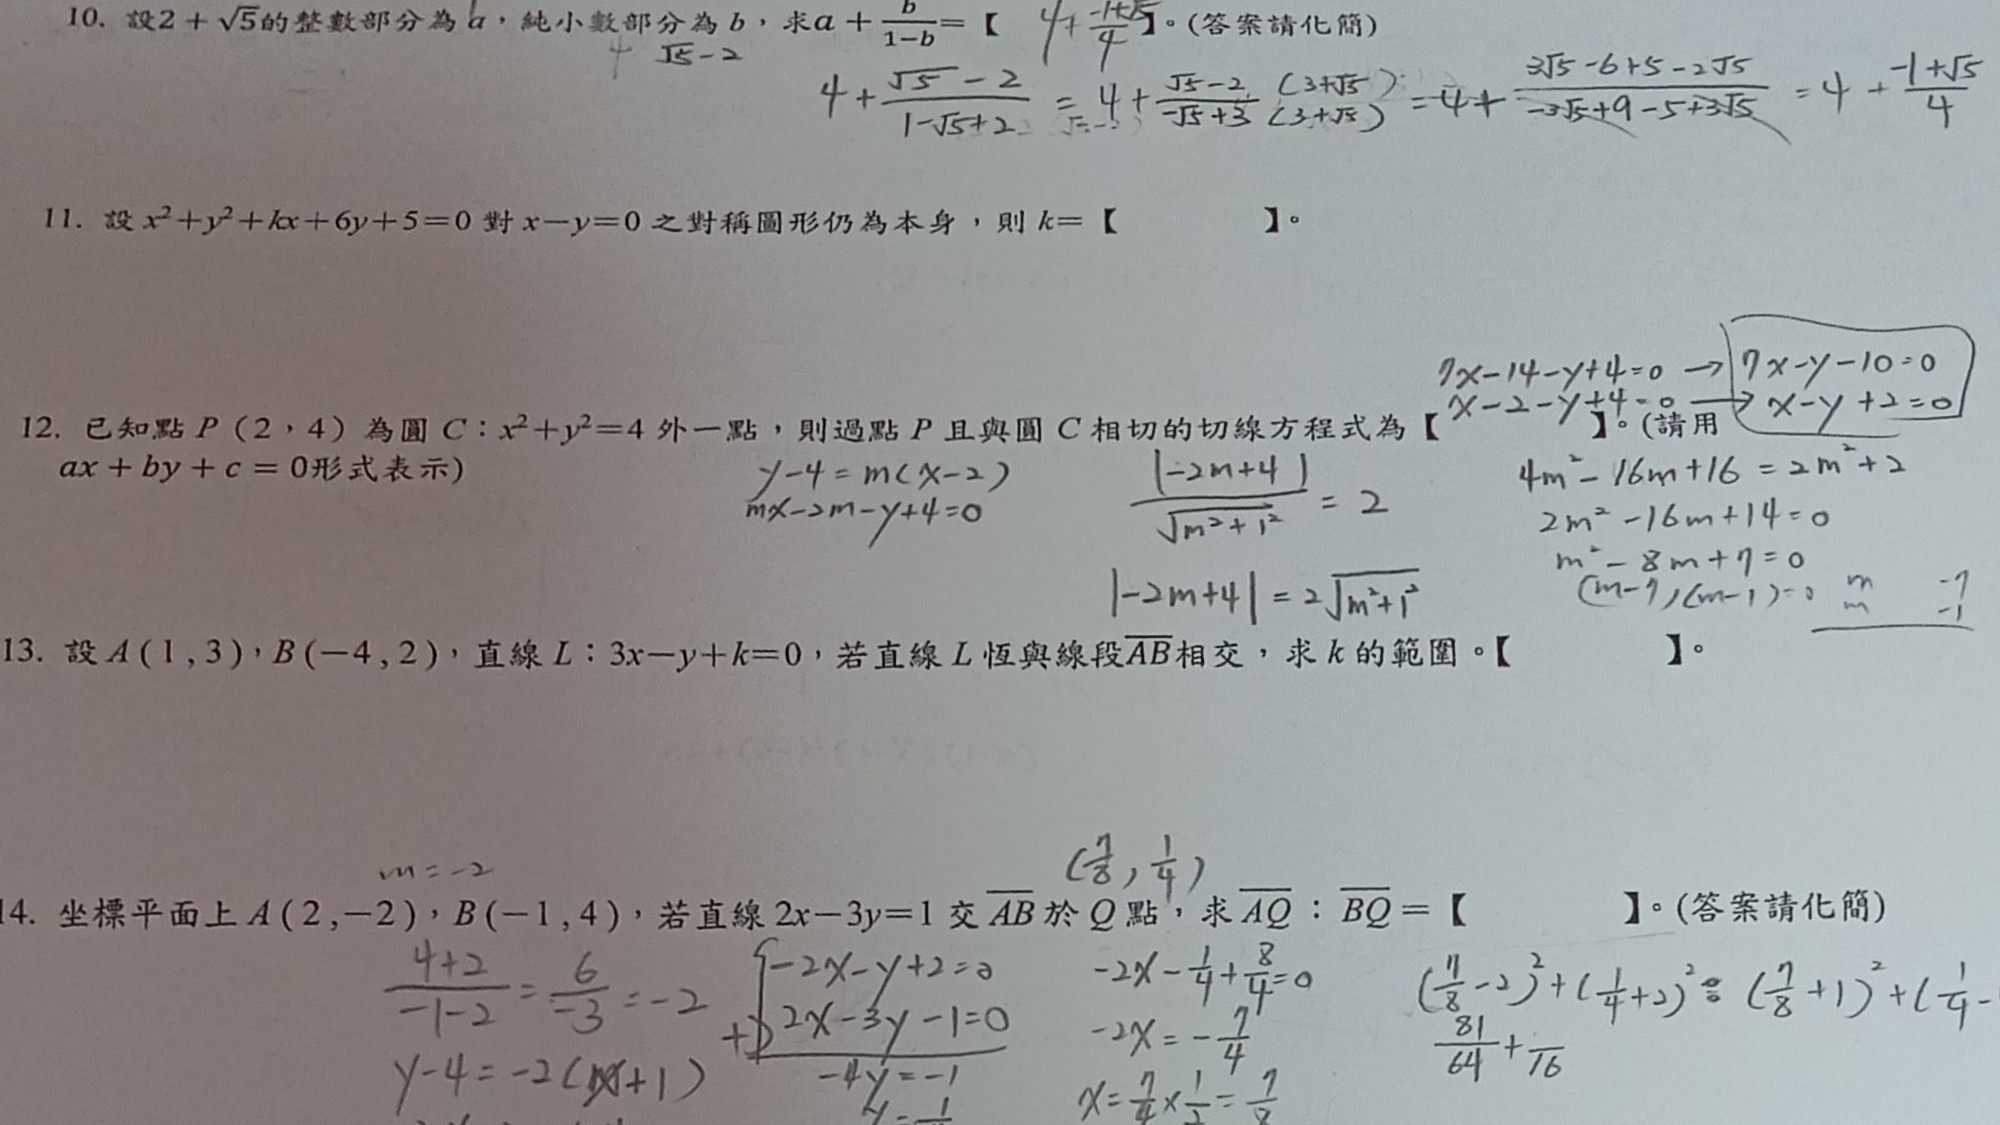 10. 設2 + √5的整數部分為 a，純小數部分為 b，求a + b/(1−b) =【 4+ (-1+√5)/4 】。(答案請化簡)
4 √5-2
4 + (√5 - 2)/(1-√5+2) = 4 + (√5-2)/(-√5+3) (3+√5)/(3+√5) = 4 + (3√5-6+5-2√5)/(-3√5+9-5+3√5) = 4 + (-1+√5)/4
11. 設 x²+y²+kx+6y+5=0 對 x−y=0 之對稱圖形仍為本身，則 k=【 】。
7x-14-y+4=0 → 7x-y-10=0
x-2-y+4=0 → x-y+2=0
12. 已知點 P（2，4）為圓 C：x²+y²=4 外一點，則過點 P 且與圓 C 相切的切線方程式為【 】。(請用
ax + by + c = 0形式表示)
y-4=m(x-2)
mx-2m-y+4=0
|-2m+4|/√(m²+1²) = 2
|-2m+4| = 2√(m²+1²)
4m²-16m+16=2m²+2
2m²-16m+14=0
m²-8m+7=0
(m-7)(m-1)=0
m -7
m -1
13. 設 A(1,3)，B(−4,2)，直線 L：3x−y+k=0，若直線 L 恆與線段AB相交，求 k 的範圍。【 】。
m=-2
(7/8, 1/4)
14. 坐標平面上 A(2,−2)，B(−1,4)，若直線 2x−3y=1 交 AB 於 Q 點，求 AQ：BQ=【 】。(答案請化簡)
(4+2)/(-1-2) = 6/-3 = -2
y-4=-2(x+1)
-2x-y+2=0
+) 2x-3y-1=0
-4y=-1
-2x-1/4+8/4=0
-2x=-7/4
x=7/4×1/2=7/8
(7/8-2)²+(1/4+2)² : (7/8+1)²+(1/4-
81/64 + /16